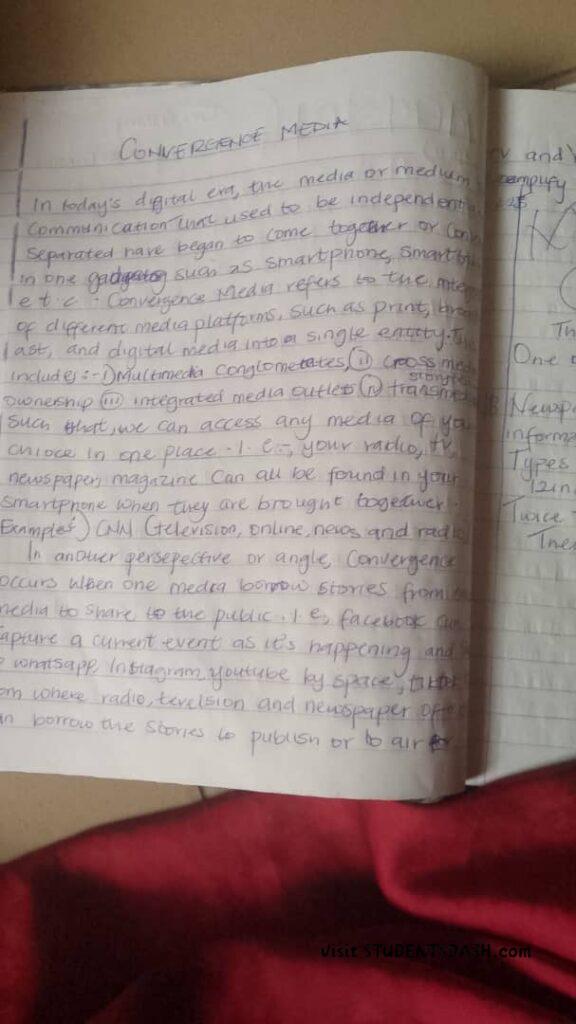 CONVERGENCE MEDIA
In today's digital era, the media or medium
Communication that used to be independent
Separated have began to come together or
in one such as smartphone, smart
e t c . Convergence Media refers to the
of different media platforms, such as print,
ast, and digital media into a single entity.
include:- i) Multimedia Conglometates, (ii) cross
ownership (iii) integrated media outlets (iv)
such that, we can access any media of
chioce in one place . i. e -, your radio, tv,
newspaper, magazine can all be found in your
smartphone when they are brought together.
Examples) CNN (television, online, news and
In another persepective or angle, Convergence
occurs when one media borrow stories from
media to share to the public. i. e, facebook can
apture a current event as it's happening and
whatsapp, Instagram, youtube by space,
om where radio, and newspaper
an borrow the stories to publish or to air
TV and
exemplify
Th
One
Newsp
informa
Types
12in
Twice
The
Visit STUDENTSDASH.com